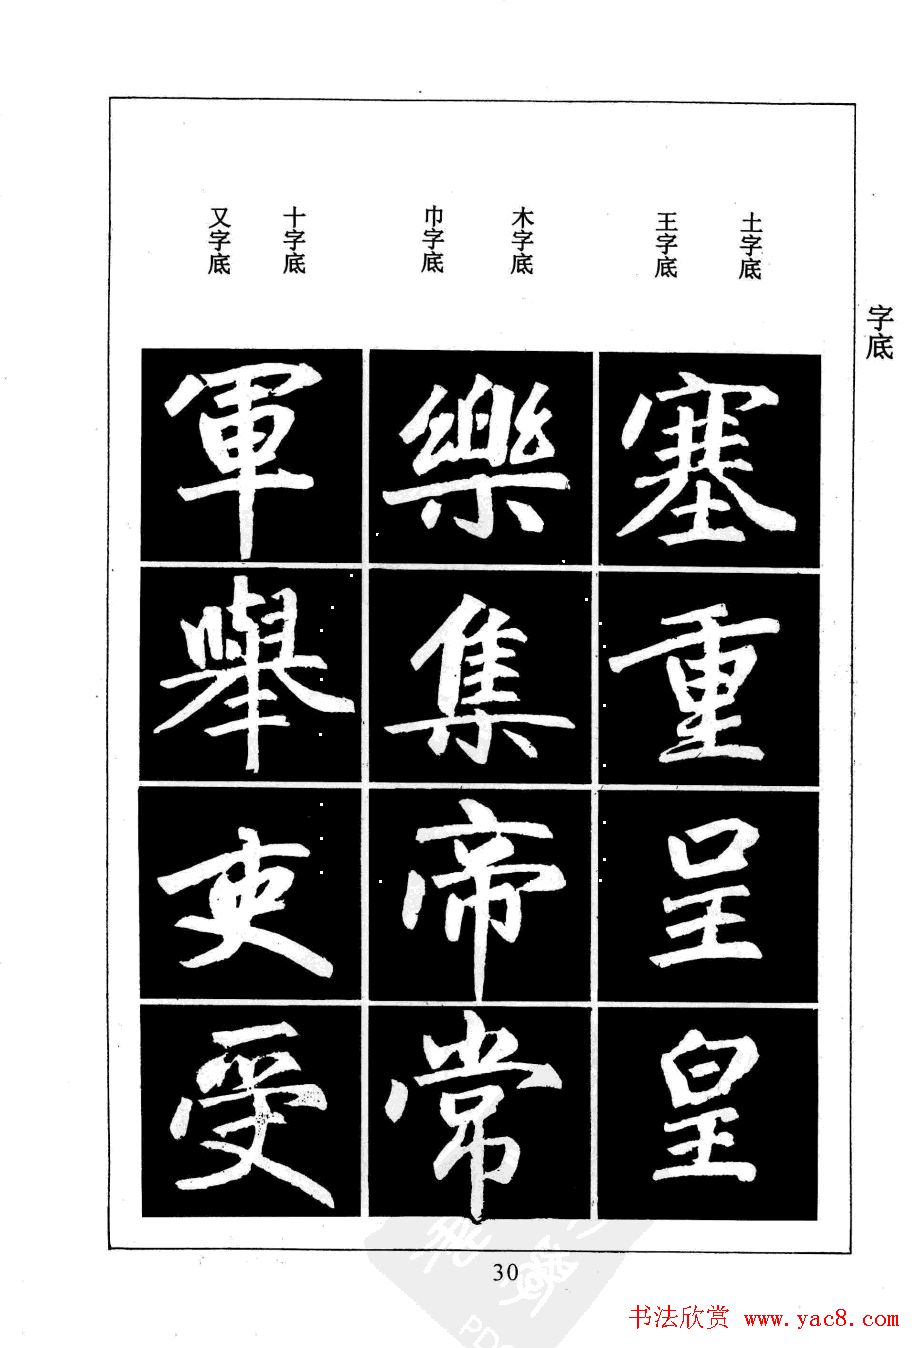 字底
土字底
王字底
木字底
巾字底
十字底
又字底
塞重呈皇
樂集帝常
軍舉吏受
30
书法欣赏 www.yac8.com